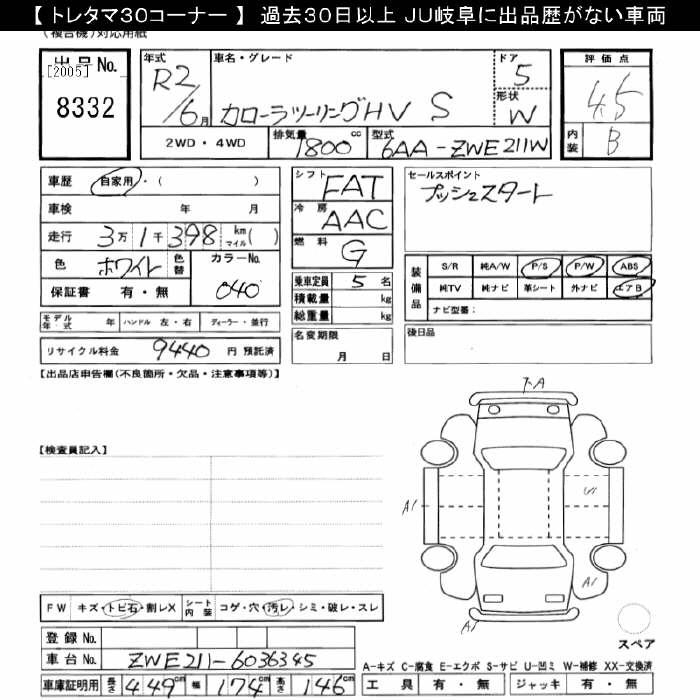 【 トレタマ30コーナー 】 過去30日以上 JU岐阜に出品歴がない車両
(複合機)対応用紙
出品No.
[2005]
8332
年式
R2/6月
車名・グレード
カローラツーリングHV S
ドア
5
形状
W
評価点
4.5
内装
B
2WD・4WD
排気量
1800 cc
型式
6AA-ZWE211W
車歴 自家用・( )
車検 年 月
走行 3万1千398 km マイル ( )
色 ホワイト 色替 カラーNo.
保証書 有・無 040
シフト FAT
冷房 AAC
燃料 G
乗車定員 5 名
積載量 kg
総重量 kg
セールスポイント
プッシュスタート
装備品
S/R 純A/W P/S P/W ABS
純TV 純ナビ 革シート 外ナビ エアB
ナビ型番:
モデル年式 年 ハンドル 左・右 ディーラー・並行
リサイクル料金 9440 円 預託済
名変期限
月 日
後日品
【出品店申告欄(不良箇所・欠品・注意事項等)】
下A
【検査員記入】
A1
A1
A1
A1
FW キズ・トビ石・割レX シート内装 コゲ・穴・汚レ・シミ・破レ・スレ
登録No.
車台No. ZWE211-6036345
車庫証明用 長さ 449cm 幅 174cm 高さ 146cm
スペア
A-キズ C-腐食 E-エクボ S-サビ U-凹ミ W-補修 XX-交換済
工具 有・無 ジャッキ 有・無